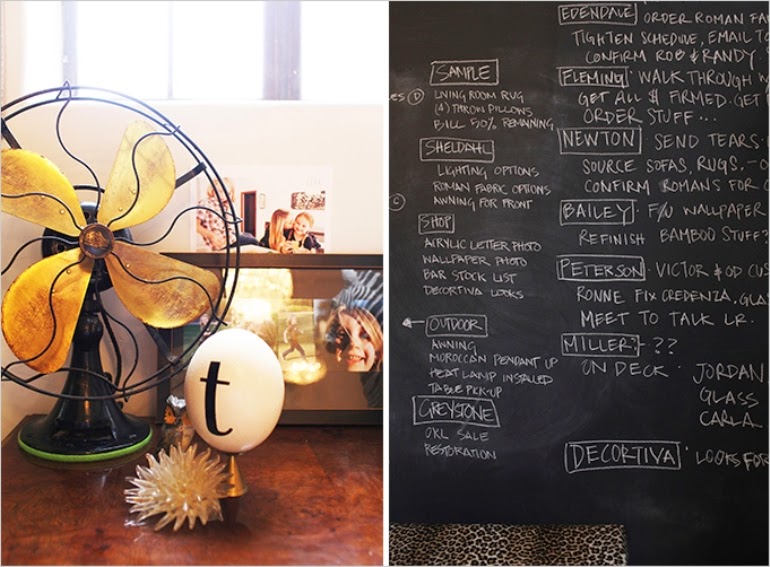 t
ES D
SAMPLE
LIVING ROOM RUG
(4) THROW PILLOWS
BILL 50% REMAINING
SHELDAHL
LIGHTING OPTIONS
ROMAN FABRIC OPTIONS
AWNING FOR FRONT
C
SHOP
ACRYLIC LETTER PHOTO
WALLPAPER PHOTO
BAR STOCK LIST
DECORTIVA LOOKS
OUTDOOR
AWNING
MOROCCAN PENDANT UP
HEAT LAMP INSTALLED
TABLE PICK-UP
GREYSTONE
OKL SALE
RESTORATION
EDENDALE ORDER ROMAN FA
TIGHTEN SCHEDULE, EMAIL TO
CONFIRM ROB & RANDY
FLEMING · WALK THROUGH
GET ALL $ FIRMED. GET
ORDER STUFF...
NEWTON SEND TEARS
SOURCE SOFAS, RUGS, -
CONFIRM ROMANS FOR
BAILEY · F/U WALLPAPER
REFINISH BAMBOO STUFF?
PETERSON · VICTOR & OD CUS
RONNE FIX CREDENZA, GLAS
MEET TO TALK LR.
MILLER? - ??
ON DECK · JORDAN
GLASS
CARLA
DECORTIVA · LOOKS FOR